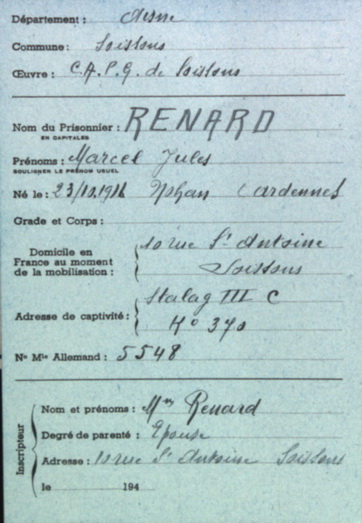 Département : Aisne
Commune : Soissons
Œuvre : C.A.P.G. de Soissons
Nom du Prisonnier : RENARD
EN CAPITALES
Prénoms : Marcel Jules
SOULIGNER LE PRÉNOM USUEL
Né le : 23/10/ (Ardennes)
Grade et Corps :
Domicile en France au moment de la mobilisation : 10 rue St Antoine
Soissons
Adresse de captivité : Stalag III C
Ko 370
No Mle Allemand : 5548
Inscripteur
Nom et prénoms : Mme Renard
Degré de parenté : Epouse
Adresse : 10 rue St Antoine Soissons
le 194